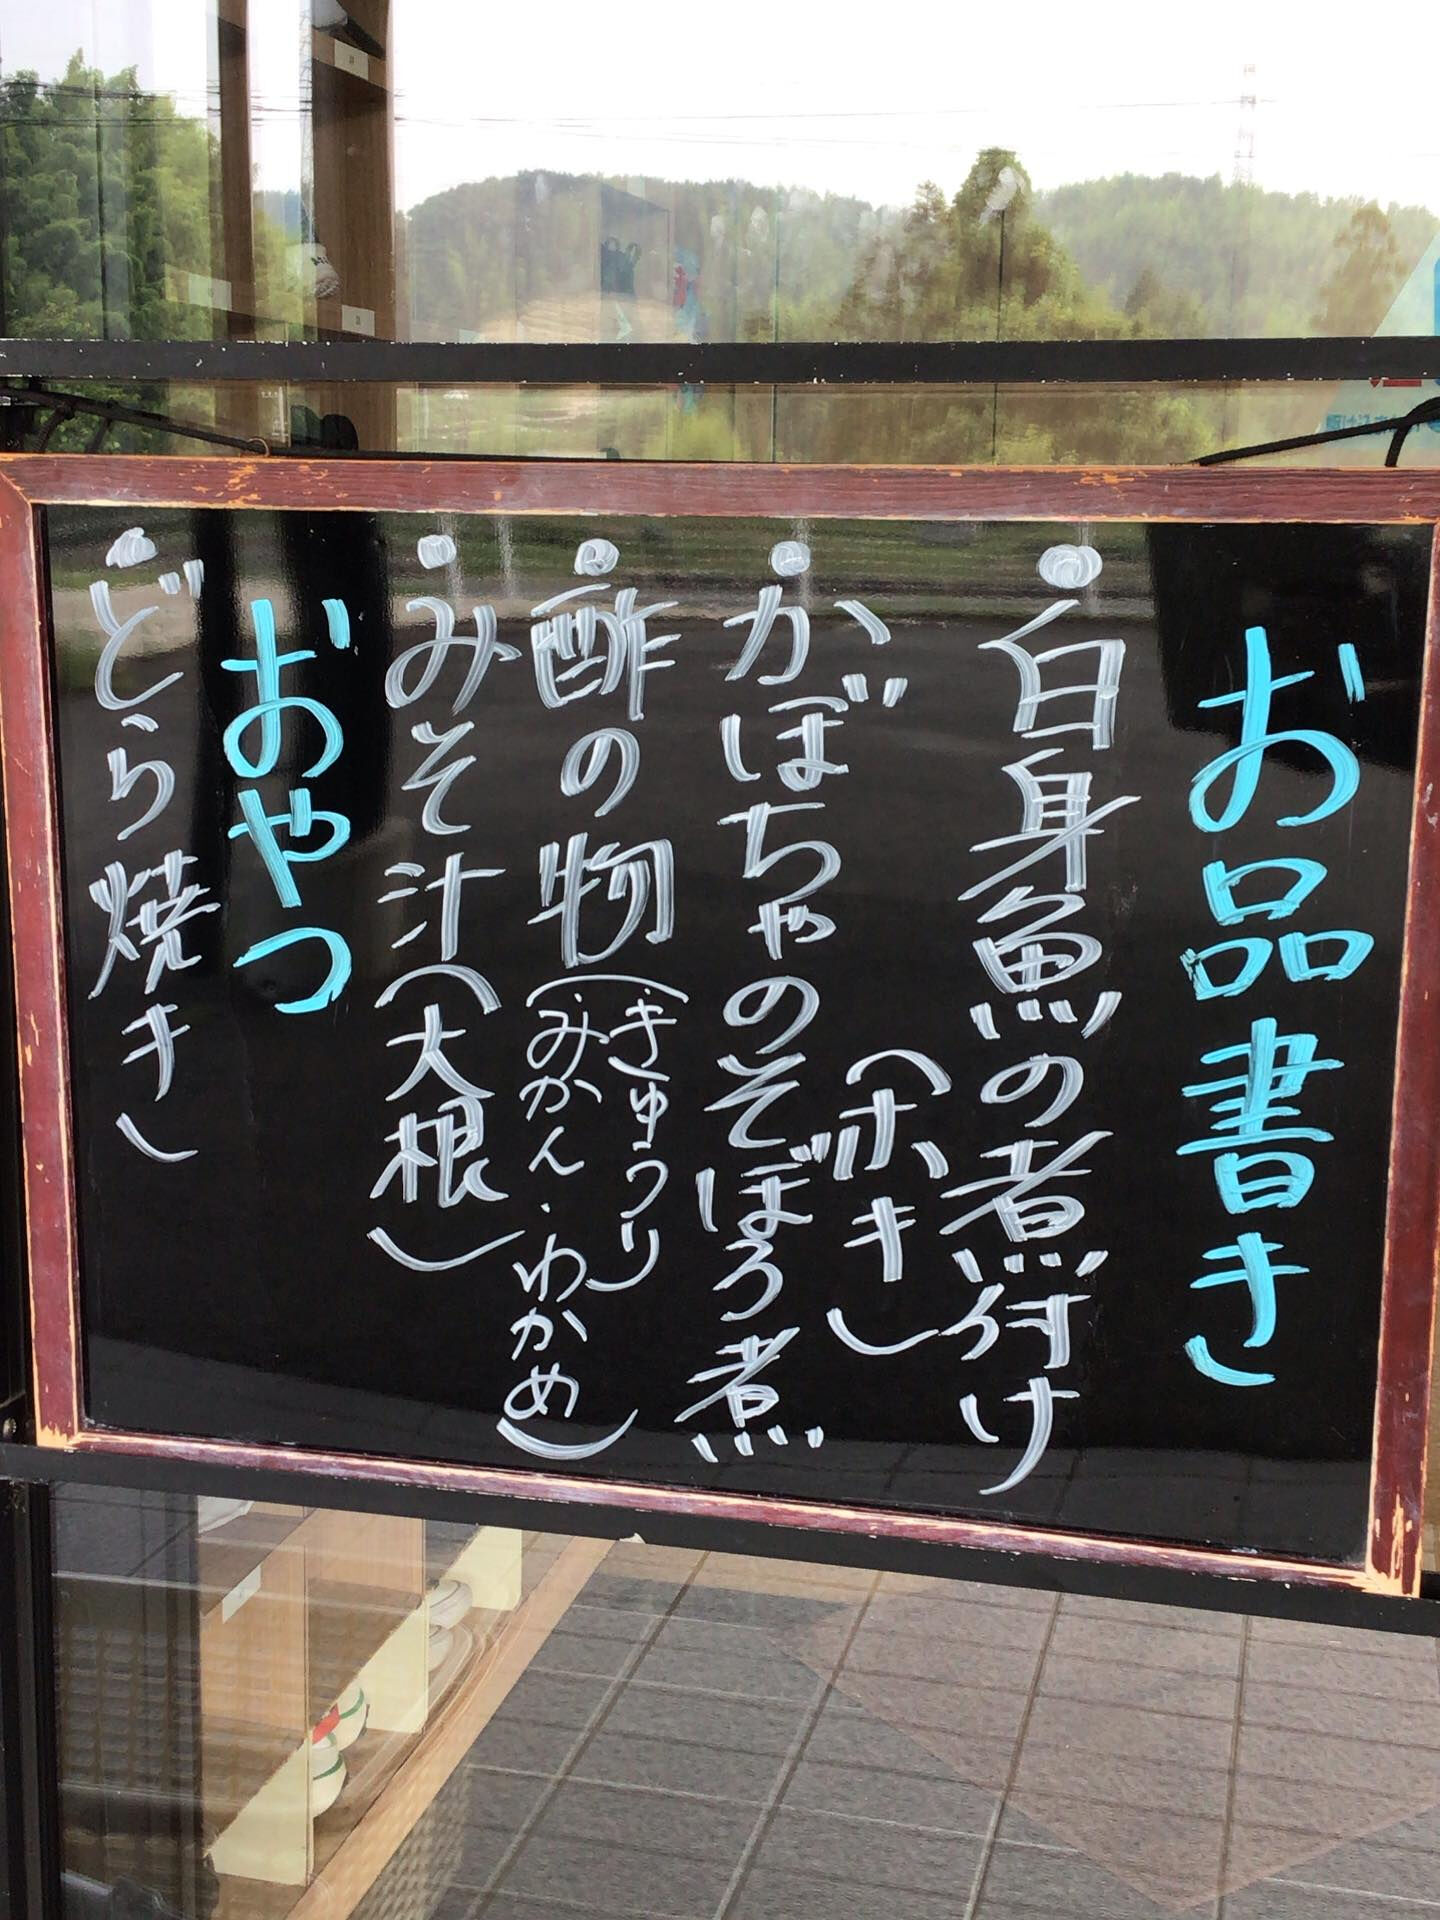 お品書き
・白身魚の煮付け
(ホキ)
・かぼちゃのそぼろ煮
・酢の物(きゅうり
・みかん・わかめ)
・みそ汁(大根)
おやつ
・どら焼き